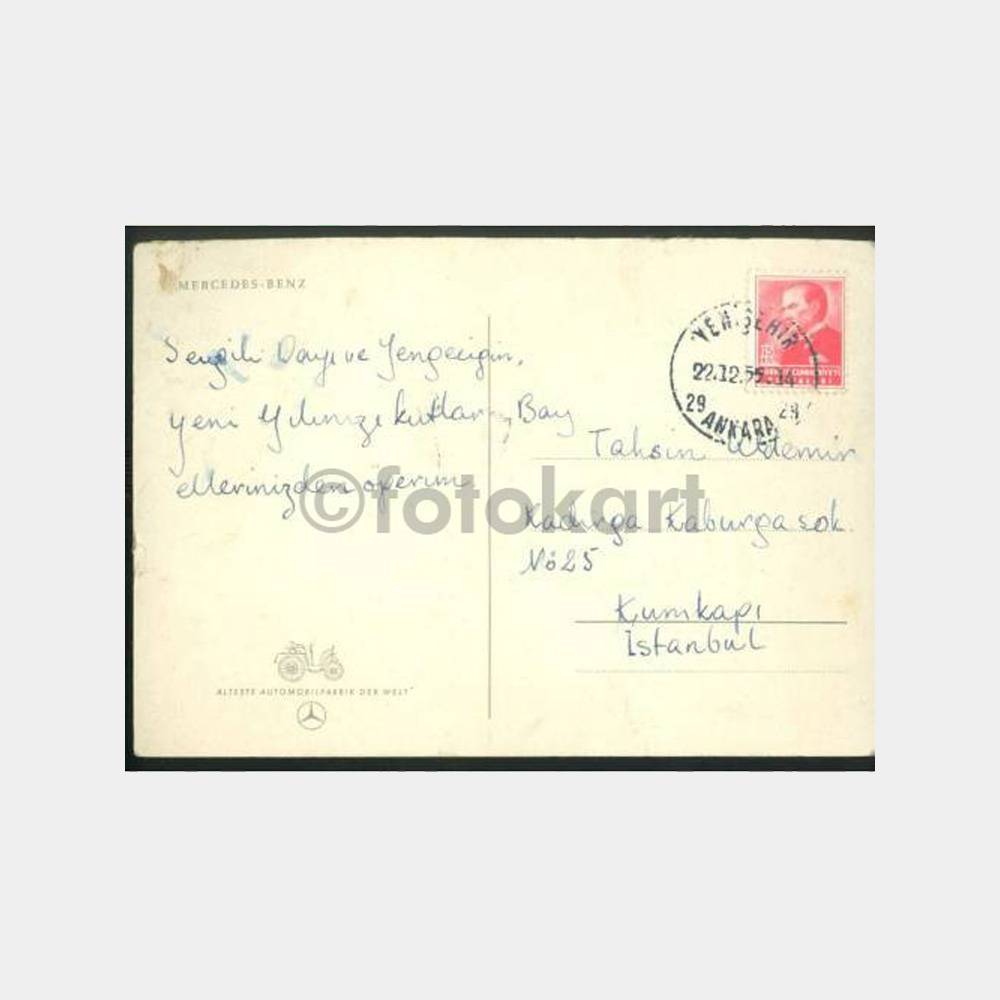 MERCEDES-BENZ
Sevgili Dayı ve Yengeciğim,
yeni Yılınızı kutlar,
ellerinizden öperim.
YENİŞEHİR
22.12.55.14
29 29
ANKARA
Bay
Tahsin
Kadırga Kaburga sok.
No 25
Kumkapı
İstanbul
©fotokart
ÄLTESTE AUTOMOBILFABRIK DER WELT